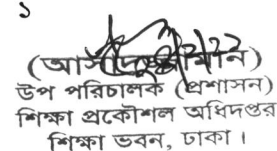 ১
(আসাদুজ্জামান)
উপ পরিচালক (প্রশাসন)
শিক্ষা প্রকৌশল অধিদপ্তর
শিক্ষা ভবন, ঢাকা।